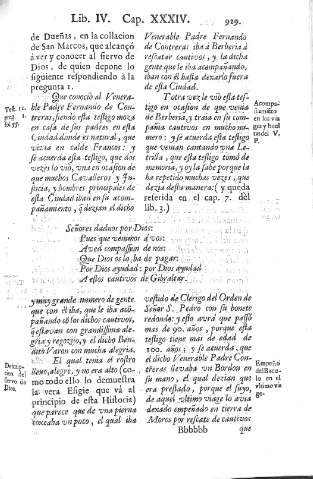 Lib. IV. Cap. XXXIV. 929.
de Dueñas, en la collacion
de San Marcos, que alcançò
à ver y conocer al siervo de
Dios, de quien depone lo
siguiente respondiendo à la
pregunta 1.
Que conociò al Venera-
ble Padre Fernando de Con-
treras, siendo esta testigo moza
en casa de sus padres en esta
Ciudad donde es natural, que
vivia en calde Francos: y
se acuerda esta testigo, que dos
vezes lo viò, una en ocasion de
que muchos Cavalleros y Ju-
sticia, y hombres principales de
esta Ciudad iban en su acom-
pañamiento, q̃ dezian el dicho
Venerable Padre Fernando
de Contreras iba à Berberia à
rescatar cautivos, y la dicha
gente que le iba acompañando,
iban con èl hasta dexarlo fuera
de esta Ciudad.
Y otra vez le viò esta tes-
tigo en ocasion de que venia
de Berberia, y traia en su com-
pañia cautivos en mucho nu-
mero: y se acuerda esta testigo
que venian cantando una Le-
trilla, que esta testigo tomò de
memoria, y oy la sabe porque la
ha repetido muchas vezes, que
dezia desta manera: (y queda
referida en el cap. 7. del
lib. 3.)
Test. 12.
preg. 1.
Acompa-
ñamiẽto
Señores dadnos por Dios:
Pues que venimos à vos:
Aved compassion de nos:
Que Dios os lo ha de pagar:
Por Dios ayudad: por Dios ayudad
A estos cautivos de Gibraltar.
y muy grande numero de gente
que con èl iba, que le iba acõ-
pañando y los dichos cautivos,
q̃ estavan con grandissima ale-
gria y regozijo, y el dicho Ben-
dito Varon con mucha alegria.
El qual tenia el rostro
lleno, alegre, y no era alto (co-
mo todo ello lo demuestra
la vera Efigie que và al
principio de esta Historia)
que parece que de una pierna
coxeaba un poco, el qual iba
vestido de Clerigo del Orden de
Señor S. Pedro con su bonete
redondo: y esto avrà que passò
mas de 90. años, porque esta
testigo tiene mas de edad de
100. años: y se acuerda que
el dicho Venerable Padre Con-
treras llevaba un Bordon en
su mano, el qual dezian que
era prestado, porque el suyo,
de aquel ultimo viage lo avia
dexado empeñado en tierra de
Moros por rescate de cautivos
siervo de
Dios.
Empeño
del Bacu-
lo en el
ultimo via
ge.
Bbbbbb que